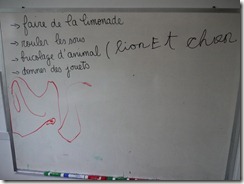 → faire de la limonade
→ rouler les sous
→ bricolage d'animal (lion Et chien
→ donner des jouets